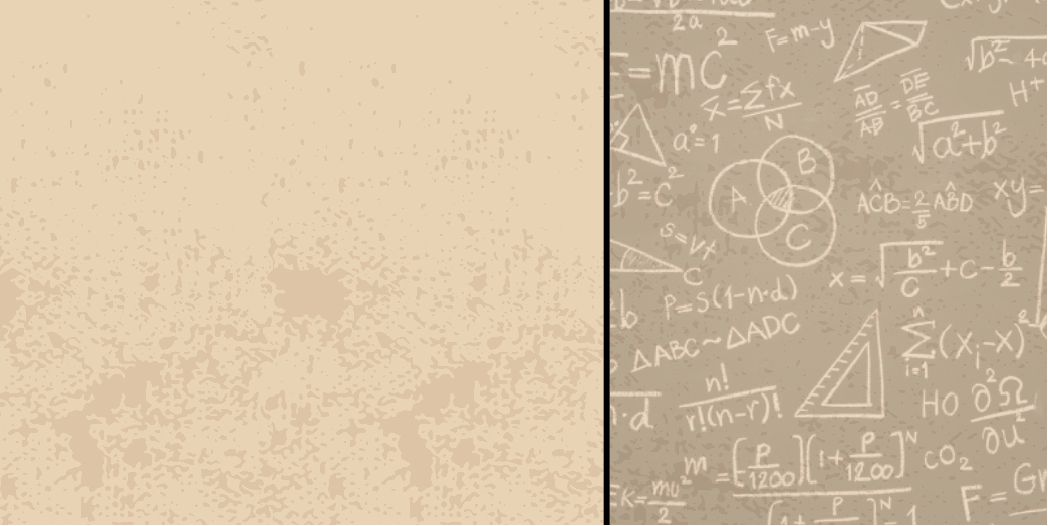 2a
F=m-y
=mC²
x̄=∑fx/N
AD/AB = DE/BC
√b²- 4
H+
a°=1
√a²+b²
A
B
C
b²=C²
ACB=2/5 ABD
xy=
s=vt
C
x=√b²/C+C-b/2
P=S(1-n·d)
ΔABC~ΔADC
n∑i=1(Xi-X)²
n!/r!(n-r)!
·d
HO
∂²Ω/∂u²
m=[P/1200][1+P/1200]^N
CO₂
K=mu²/2
F=G